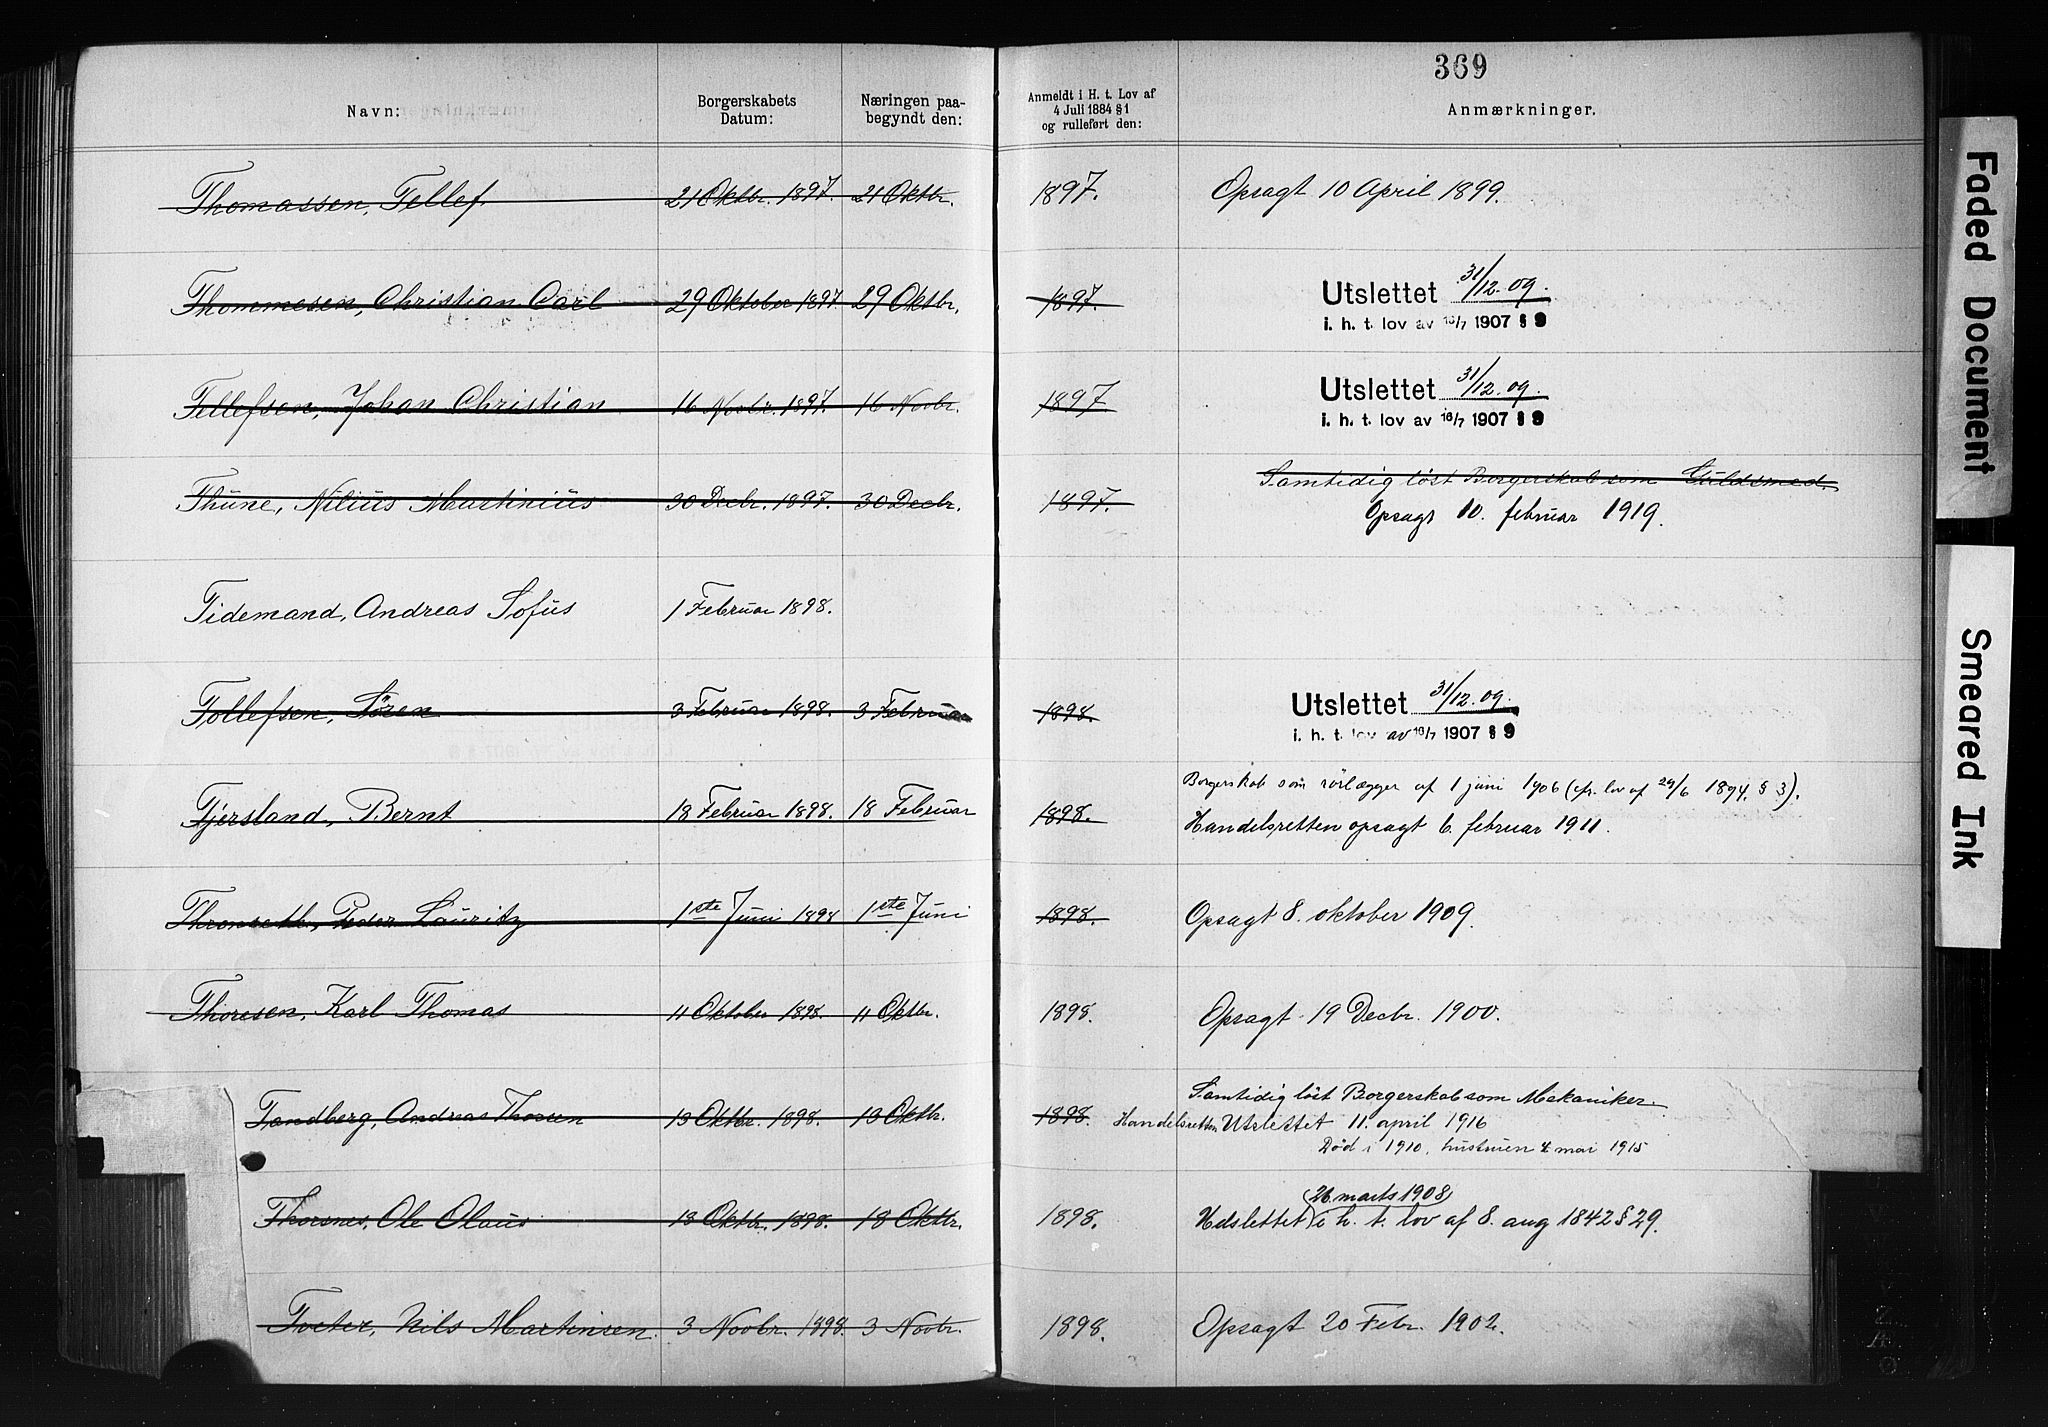 369
Navn: Borgerskabets Datum: Næringen paa-begyndt den: Anmeldt i H. t. Lov af 4 Juli 1884 § 1 og rulleført den: Anmærkninger.
Thomassen, Tellef. 21 Oktbr. 1897. 21 Oktbr. 1897. Opsagt 10 April 1899.
Thommesen, Christian Carl 29 Oktober 1897 29 Oktbr. 1897. Utslettet 31/12.09.
i. h. t. lov av 16/7 1907 § 9
Tellefsen, Johan Christian 16 Novbr. 1897. 16 Novbr. 1897 Utslettet 31/12.09.
i. h. t. lov av 16/7 1907 § 9
Thune, Nilius Martinius 30 Decbr. 1897. 30 Decbr. 1897. Samtidig löst Borgerskab som Guldsmed.
Opsagt 10. februar 1919.
Tidemand, Andreas Sofus 1 Februar 1898.
Tollefsen, Sören 3 Februar 1898. 3 Februar 1898. Utslettet 31/12.09.
i. h. t. lov av 16/7 1907 § 9
Tjersland, Bernt 18 Februar 1898. 18 Februar 1898. Borgerskab som rörlægger af 1 juni 1906 (cfr. lov af 29/6 1894. § 3).
Handelsretten opsagt 6. februar 1911.
Peder Lauritz 1ste Juni 1898 1ste Juni 1898. Opsagt 8. oktober 1909.
Thoresen, Karl Thomas 11 Oktober 1898. 11 Oktbr. 1898. Opsagt 19 Decbr. 1900.
Tandberg, Andreas Thorsen 13 Oktbr. 1898. 13 Oktbr. 1898. Samtidig löst Borgerskab som Mekaniker.
Handelsretten Utslettet 11. april 1916
Död i 1910, hustruen 4 mai 1915
Thorsnes, Ole Olaus 18 Oktbr. 1898. 18 Oktbr. 1898. Udslettet (26 marts 1908) i h. t. lov af 8. aug 1842 § 29.
Tveter, Nils Martinsen. 3 Novbr. 1898. 3 Novbr. 1898. Opsagt 20 Febr. 1902.
Faded Document
Smeared Ink